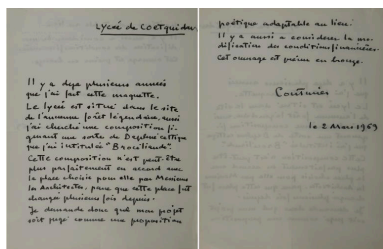 Lycée de Coetquidan
Il y a deja plusieurs années
que j'ai fait cette maquette.
Le lycée est situé dans le site
de l'immense forêt légendaire, aussi
j'ai cherché une composition fi-
gurant une sorte de Daphné celtique
que j'ai intitulée "Brocéliande".
Cette composition n'est peut-être
plus parfaitement en accord avec
la place choisie pour elle par Messieurs
les Architectes, parce que cette place fut
changée plusieurs fois depuis.
Je demande donc que mon projet
soit jugé comme une proposition
poétique adaptable au lieu.
Il y a aussi a considerer la mo-
dification des conditions financières.
Cet ouvrage est prévu en bronze.
Couturier
le 2 Mars 1969